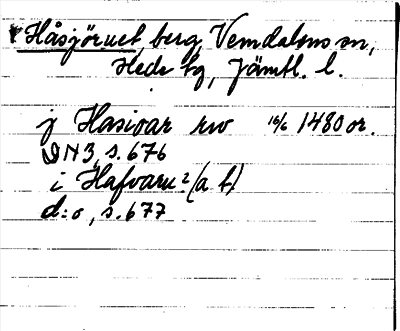 Håsjöruet, berg, Vemdalens sn,
Heds tg, Jämtl. l.
j Hasivar rw 16/6 1480 or.
DN3, s. 676
i Hafvaru ? (a f)
d:o, s. 677